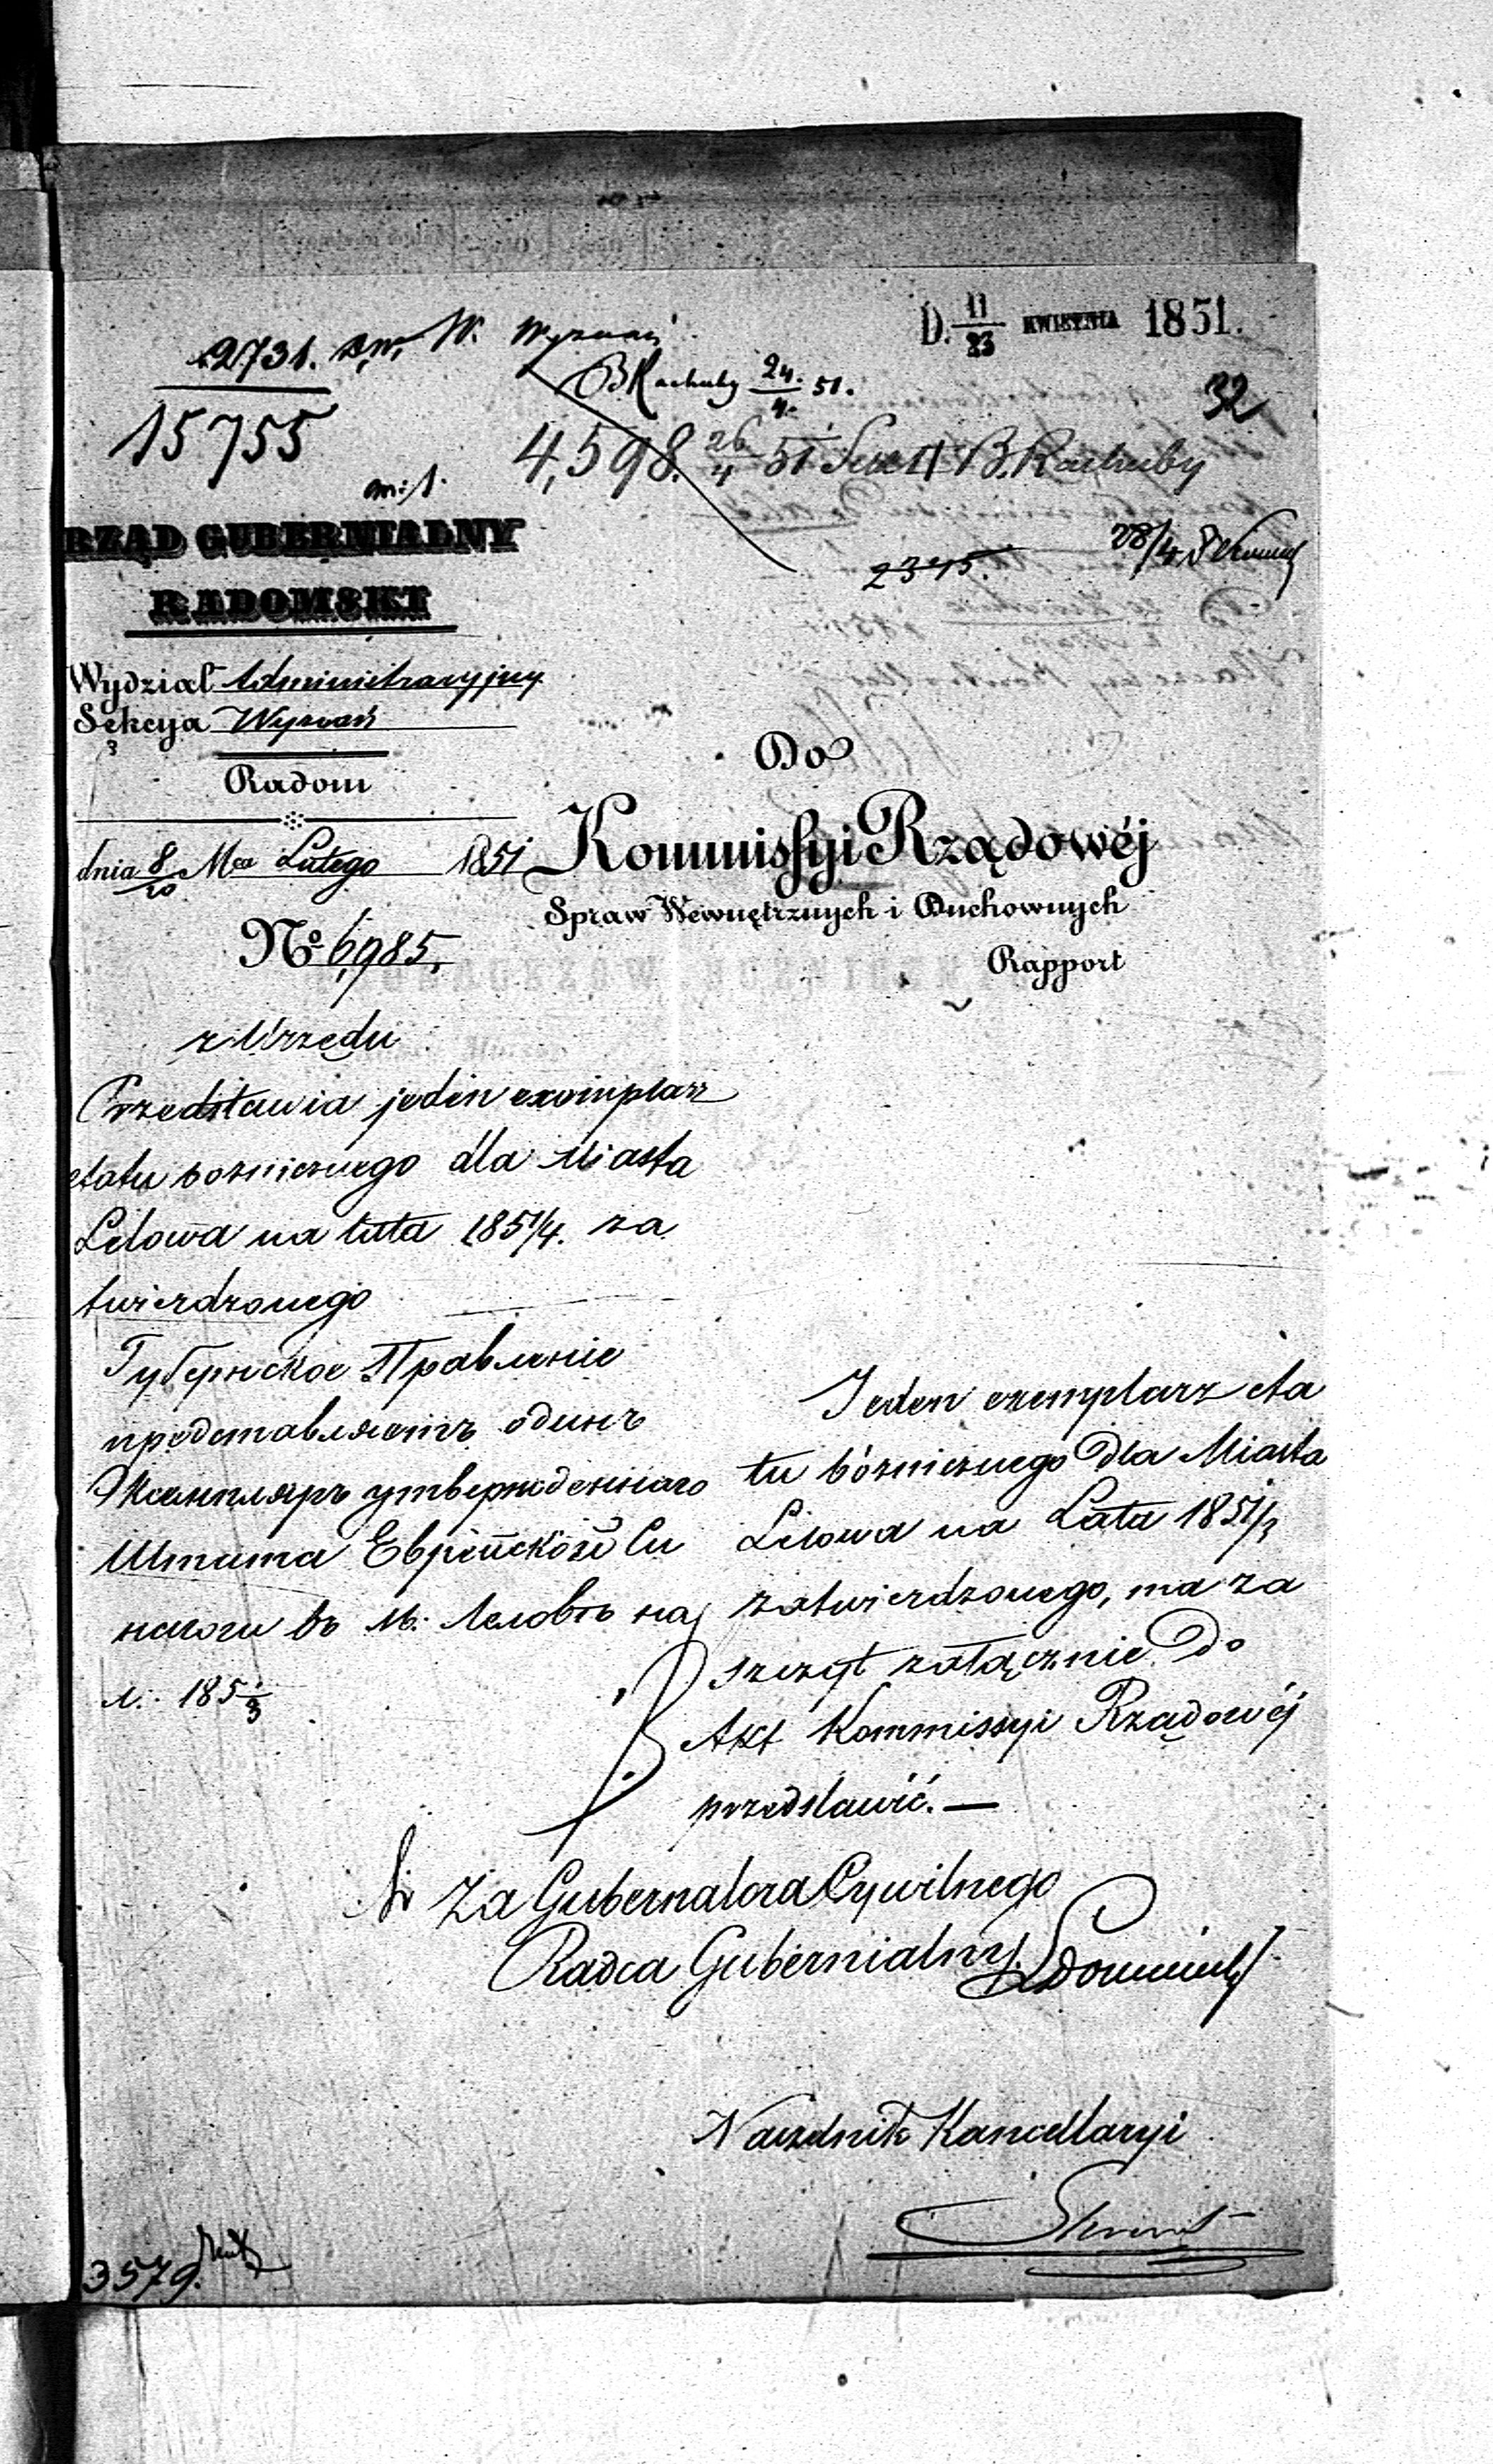 D. 11/23 KWIETNIA 1851.
2731. W. Wyznań
15755
B Rachuby 24/4. 51.
32
4,598. 26/4 51 B. Rachuby
2345.
28/4
RZĄD GUBERNIALNY
RADOMSKI
Wydział Administracyjny
Sekcya Wyznań
Radom
dnia 8/20 Mca Lutego 1851
No 6,985.
Do
Kommissyi Rządowéj
Spraw Wewnętrznych i Duchownych
Rapport
z Urzędu
Przedstawia jeden exemplarz
etatu bożnicznego dla Miasta
Lelowa na lata 1851/4. za
twierdzonego
Губернское Правленіе
представляетъ одинъ
Экземпляръ утвержденнаго
Штата Еврейской Си
нагоги въ М. Леловѣ на
1851/3
Jeden exemplarz eta
tu bóżnicznego dla Miasta
Lelowa na Lata 1851/3
zatwierdzonego, ma za
szczyt załącznie do
Akt Kommissyi Rządowéj
przedstawić. —
Za Gubernatora Cywilnego
Radca Gubernialny
Naczelnik Kancellaryi
3579.